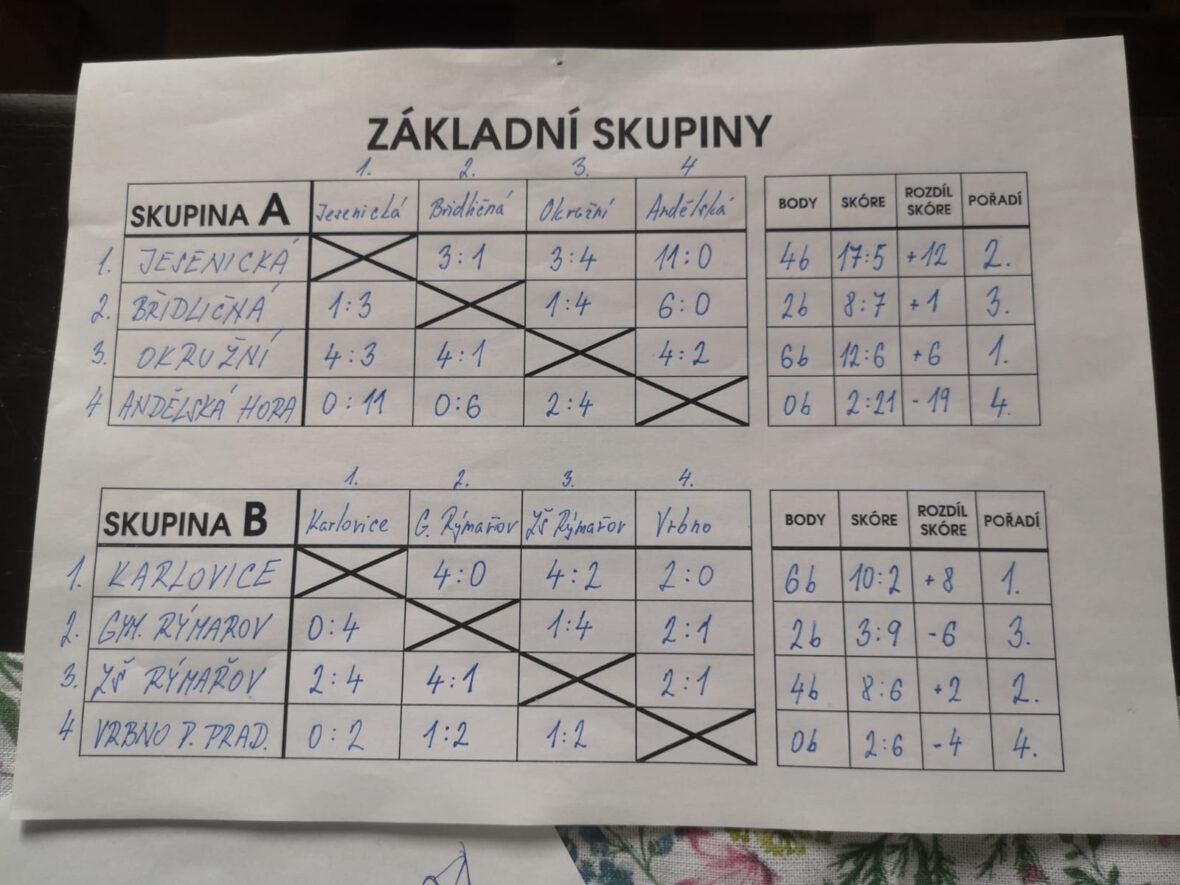 ZÁKLADNÍ SKUPINY
1. 2. 3. 4
SKUPINA A Jesenická Bridličná Okružní Andělská BODY SKÓRE ROZDÍL SKÓRE POŘADÍ
1. JESENICKÁ 3:1 3:4 11:0 4b 17:5 +12 2.
2. BŘIDLIČNÁ 1:3 1:4 6:0 2b 8:7 +1 3.
3. OKRUŽNÍ 4:3 4:1 4:2 6b 12:6 +6 1.
4 ANDĚLSKÁ HORA 0:11 0:6 2:4 0b 2:21 -19 4.
1. 2. 3. 4.
SKUPINA B Karlovice G. Rýmařov ZŠ Rýmařov Vrbno BODY SKÓRE ROZDÍL SKÓRE POŘADÍ
1. KARLOVICE 4:0 4:2 2:0 6b 10:2 +8 1.
2. GYM. RÝMAROV 0:4 1:4 2:1 2b 3:9 -6 3.
3. ZŠ RÝMAŘOV 2:4 4:1 2:1 4b 8:6 +2 2.
4 VRBNO P. PRAD. 0:2 1:2 1:2 0b 2:6 -4 4.